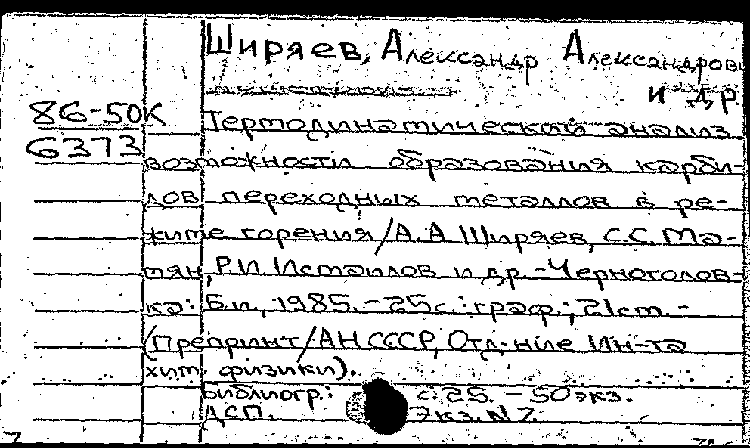 Ширяев, Александр Александрови
и др.
86-50К
6373
Термодинамический анализ
возможности образования карби-
дов переходных металлов в ре-
жиме горения/А.А Ширяев, С.С. Ма-
мян, Р.И. Исмаилов и др.-Черноголов-
ка: Б.и, 1985.-25с.: граф.; 21см.-
(Препринт/АН СССР, Отд-ние Ин-та
хим. физики).
Библиогр.: с. 25. - 50 экз.
ДСП. Экз. N 7.